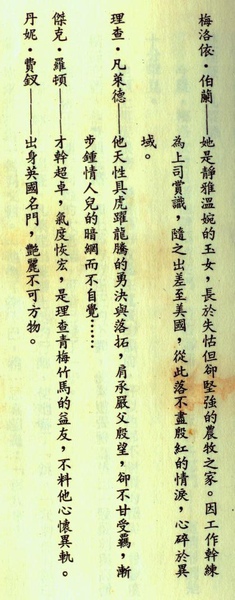 梅洛依・伯蘭——她是靜雅溫婉的玉女，長於失怙但卻堅強的農牧之家。因工作幹練
為上司賞識，隨之出差至美國，從此落不盡殷紅的情淚，心碎於異
域。
理查・凡萊德——他天性具虎躍龍騰的勇決與落拓，肩承嚴父殷望，卻不甘受羈，漸
步鍾情人兒的暗網而不自覺……
傑克・羅頓——才幹超卓，氣度恢宏，是理查青梅竹馬的益友，不料他心懷異軌。
丹妮・費釵——出身英國名門，艷麗不可方物。